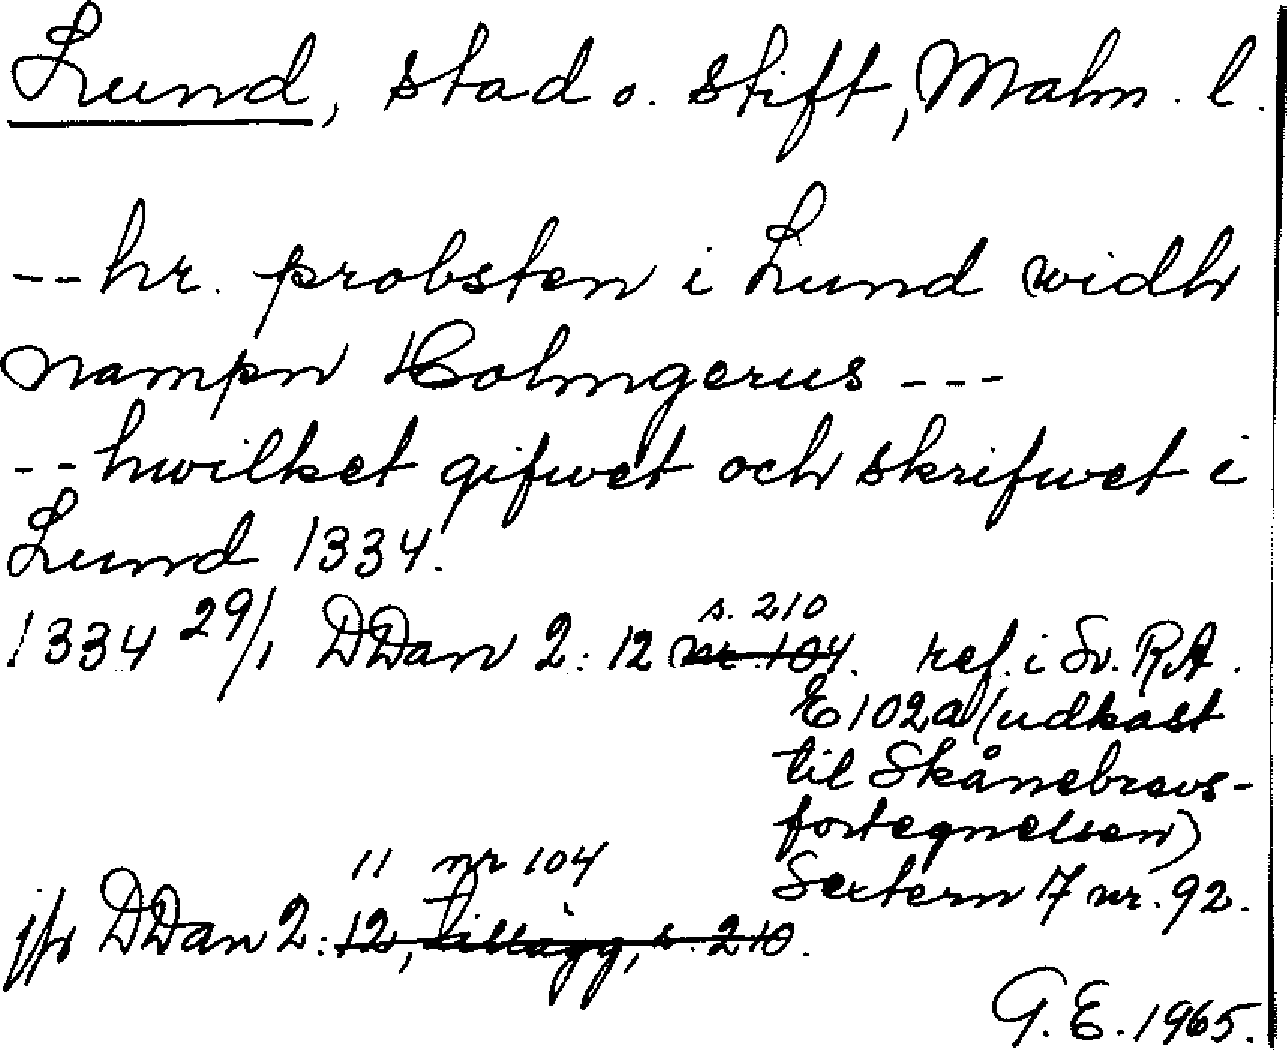 Lund, stad o. stift, Malm. l.
-- hr. probsten i Lund widh
nampn Holmgerus ---
-- hwilket gifwet och skrifwet i
Lund 1334.
1334 29/1 DDan 2: 12 nr 104. s. 210 ref. i Sv. RA.
E 102a (udkast
til Skånebrevs-
fortegnelsen)
Sextern 7 nr. 92.
11 nr 104
jfr DDan 2: 12, tillägg, s. 210.
G. E. 1965.